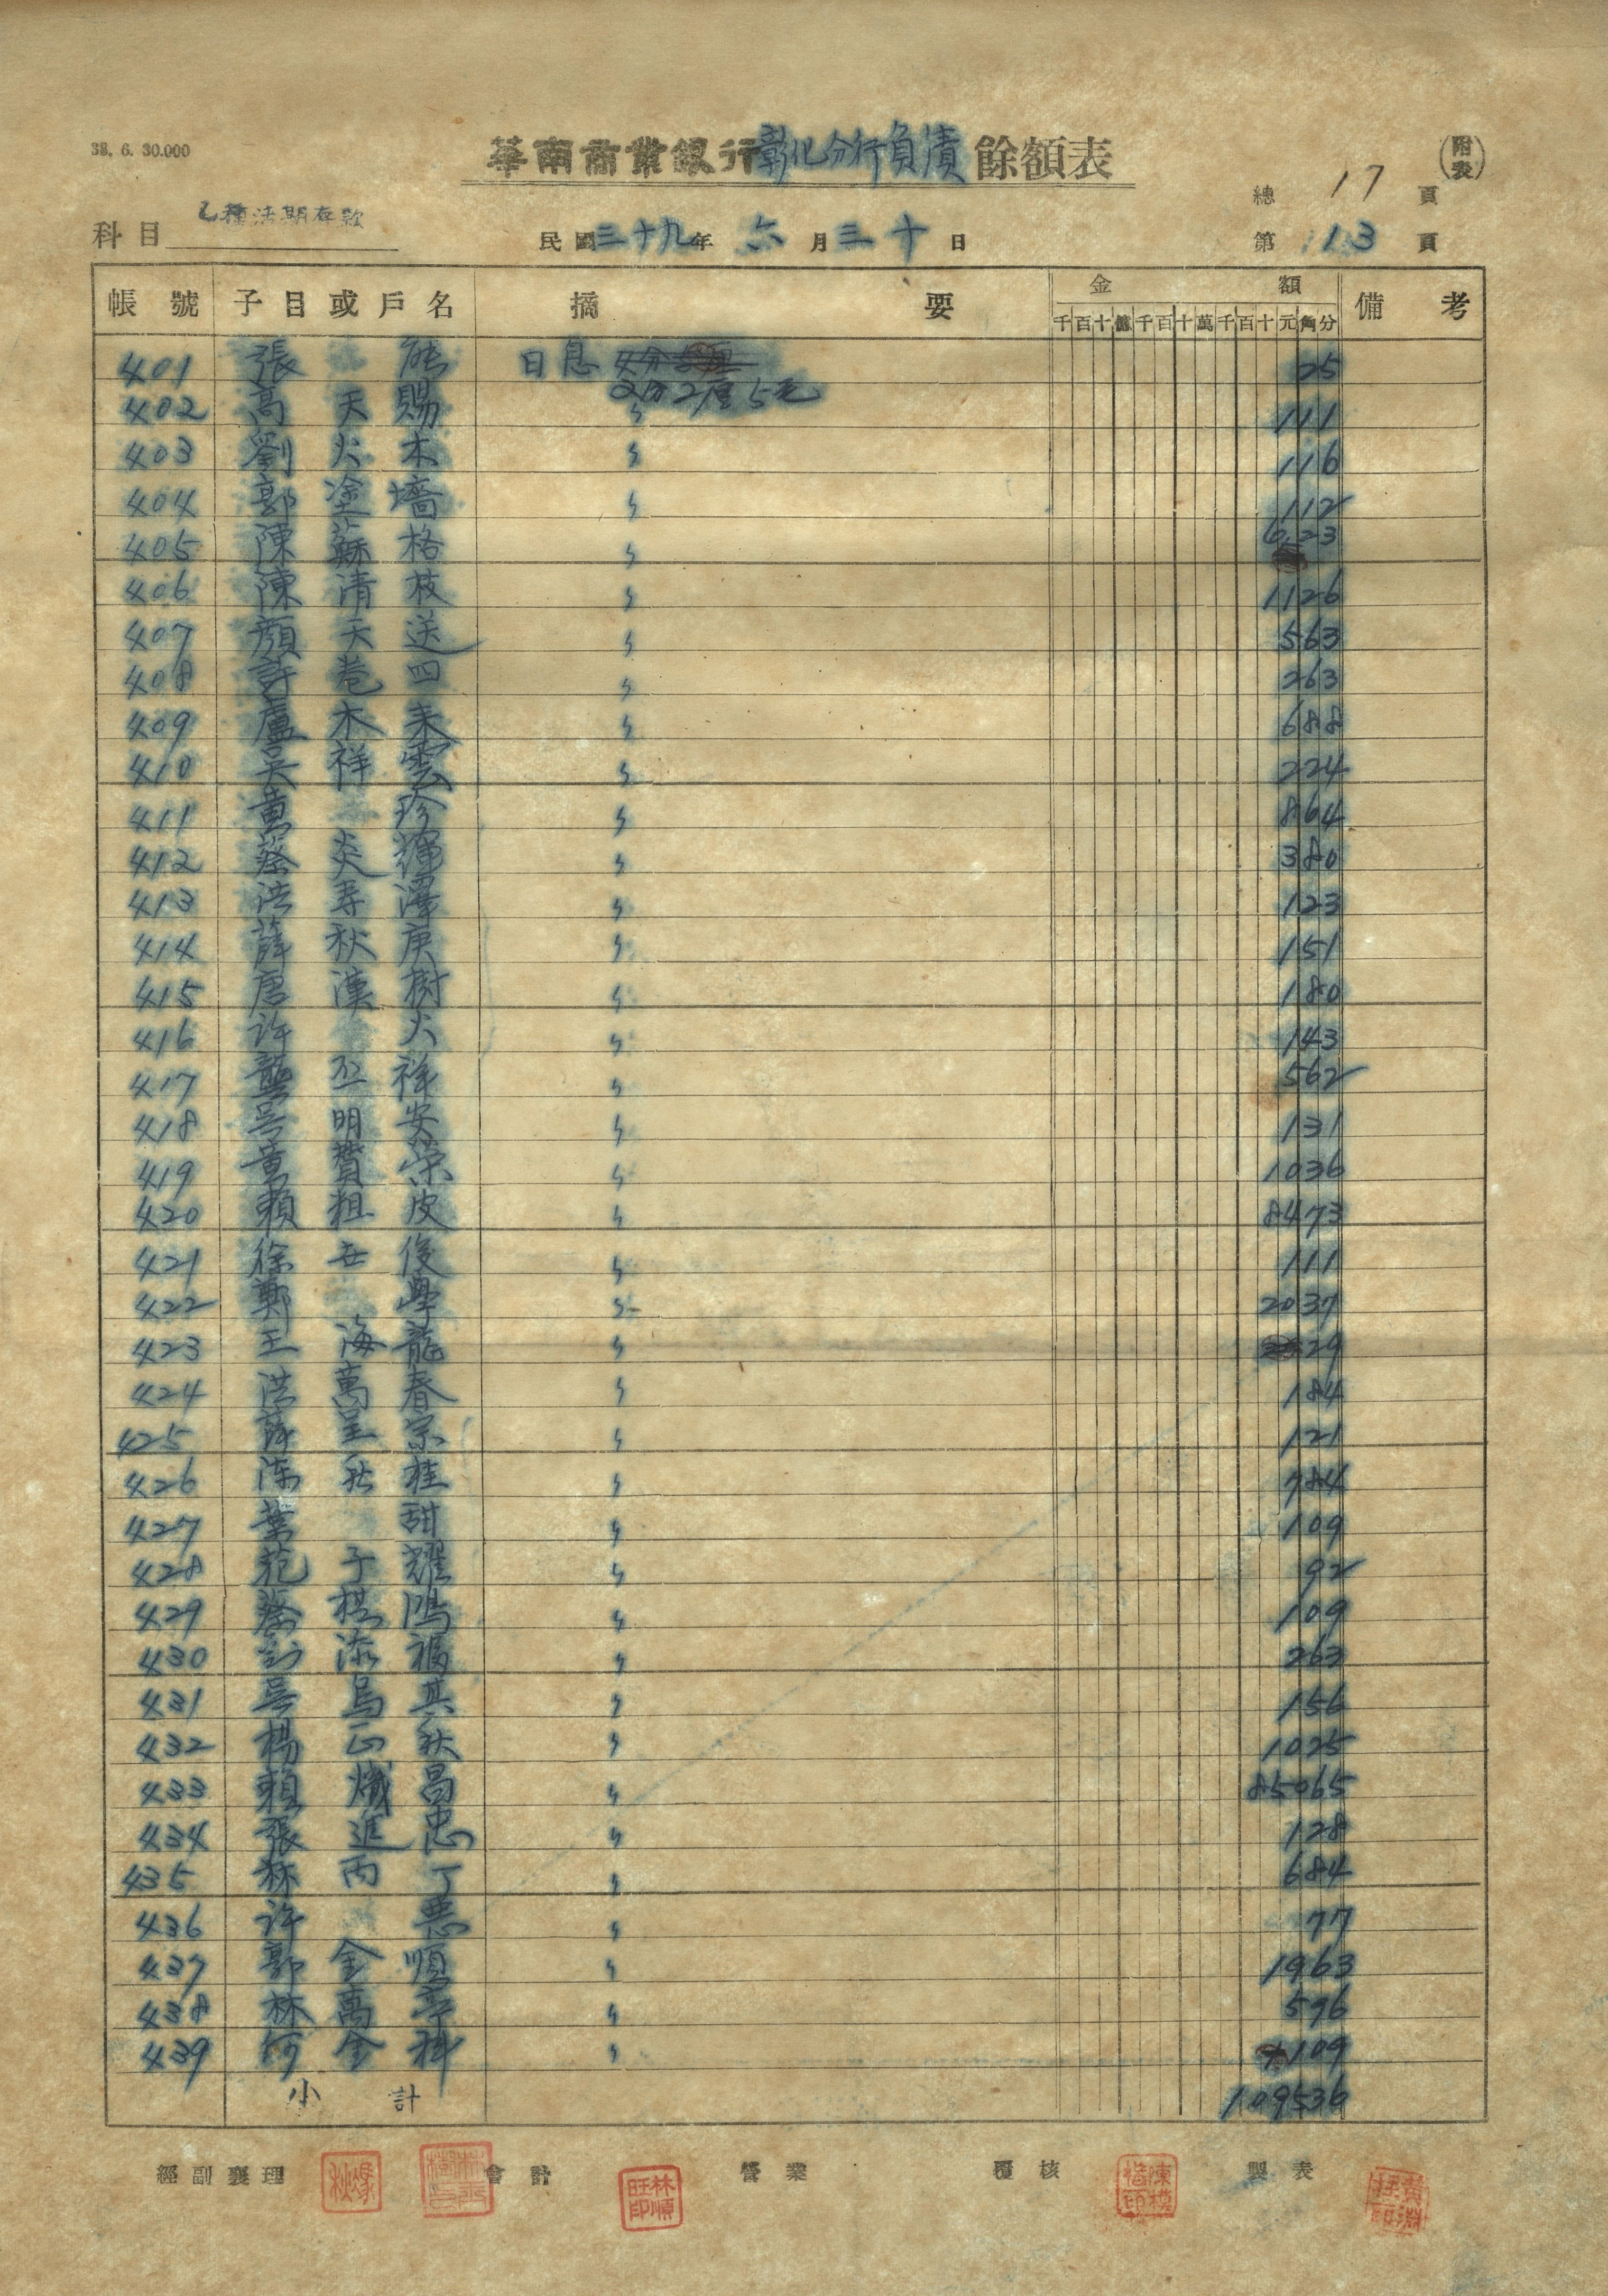 38. 6. 30.000
華南商業銀行彰化分行負債餘額表
(附表)
總 17 頁
科目 乙種活期存款
民國三十九年 六 月三十日
第 13 頁
帳號 子目或戶名 摘要 金額 備考
千百十億千百十萬千百十元角分
401 張 能 日息 25
2分2厘5毛
402 高天賜 〃 111
403 劉火木 〃 116
404 郭塗墻 〃 112
405 陳蘇格 〃 623
406 陳清枝 〃 1126
407 顏天送 〃 563
408 許卷四 〃 263
409 盧木來 〃 688
410 吳祥雲 〃 224
411 黃 珍 〃 864
412 蔡炎輝 〃 380
413 洪壽澤 〃 123
414 薛秋庚 〃 151
415 唐漢樹 〃 180
416 許 火 〃 143
417 龔丕祿 〃 562
418 吳明安 〃 131
419 黃贊榮 〃 1036
420 賴粗皮 〃 8473
421 徐世俊 〃 111
422 鄭 學 〃 2037
423 王海龍 〃 29
424 洪萬春 〃 184
425 薛呈宗 〃 121
426 陳秋桂 〃 784
427 葉 甜 〃 109
428 范子耀 〃 92
429 蔡棋鴻 〃 109
430 彭添福 〃 263
431 吳烏其 〃 156
432 楊正秋 〃 1025
433 賴熾昌 〃 85065
434 張進忠 〃 128
435 林丙丁 〃 684
436 許 惡 〃 77
437 郭金順 〃 1963
438 林萬亭 〃 576
439 何金科 〃 109
小計 109536
經副襄理 會計 營業 覆核 製表
林順旺印
陳模楷印